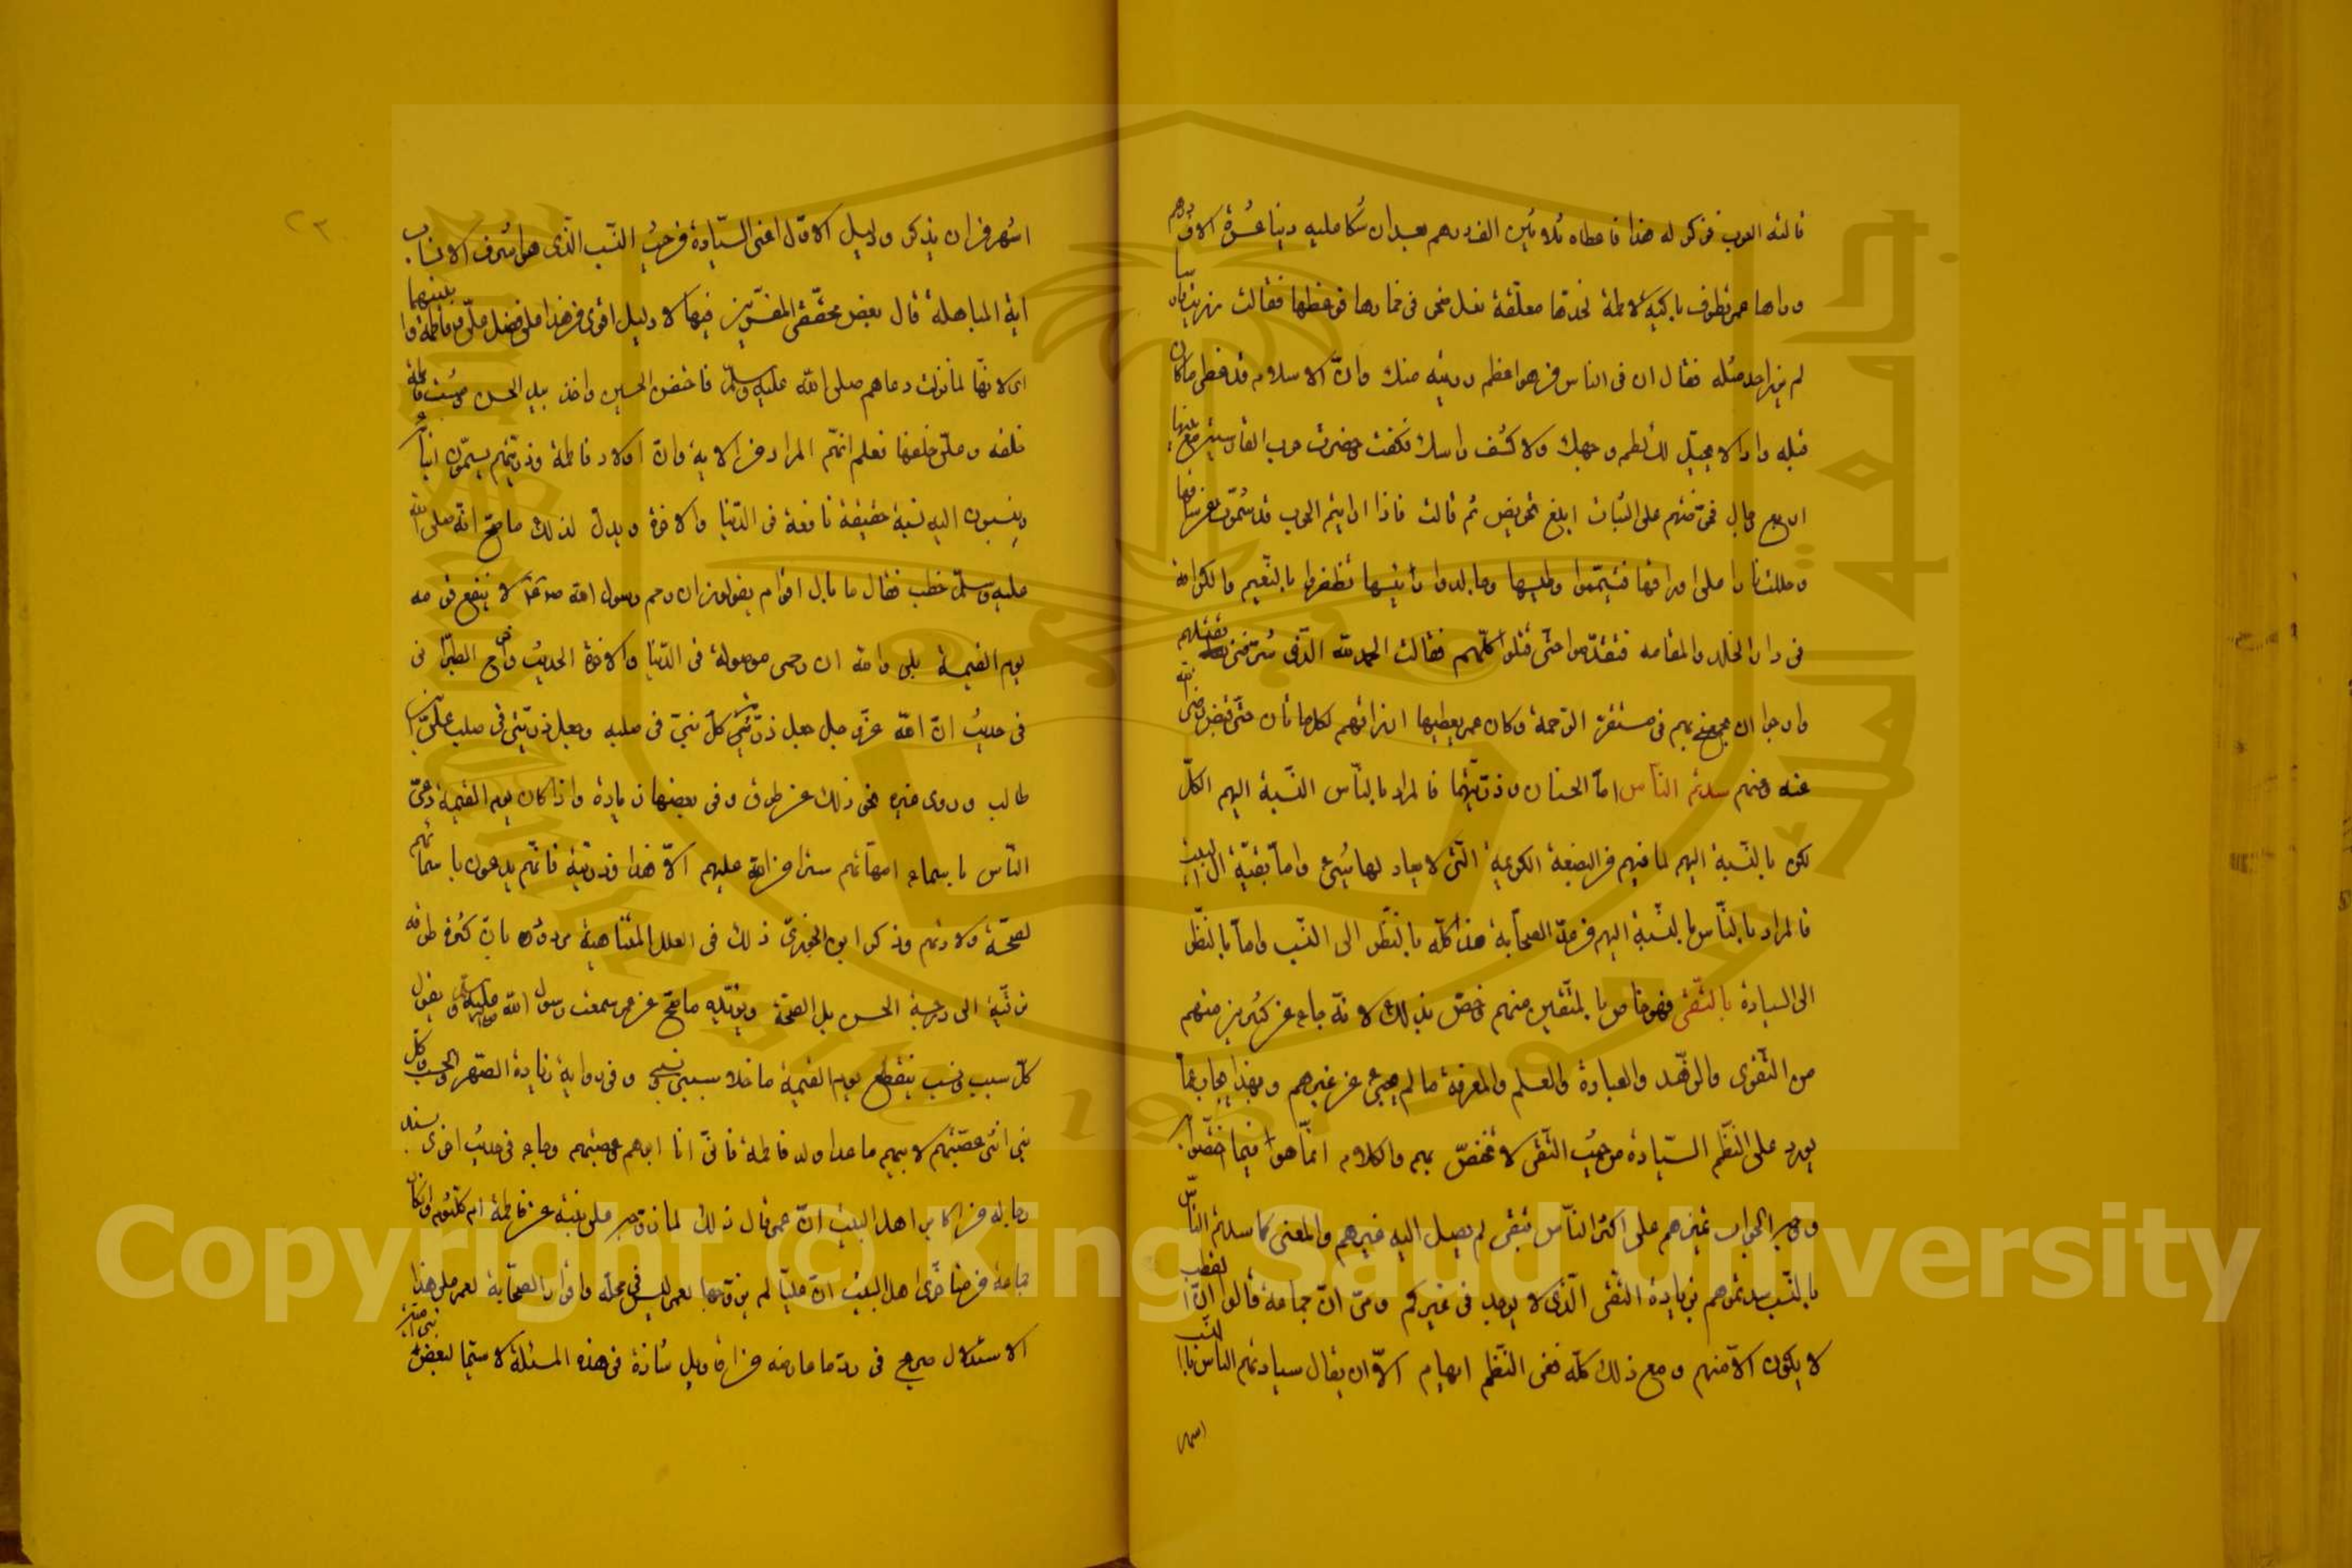 قالته العرب فذكر له هذا فاعطاه ثلاثين الف درهم بعد ان شكا عليه دينا عشرة الاف درهم
وراها عمر تطوف باكية لاطمة خدها معلقة نعل صخر في خمارها فوعظها فقالت
لم يرزا احد مثله فقال ان في الناس من هو اعظم رزية منك وان الاسلام قد غطى ما كان
قبله وانه لا يحل لك لطم وجهك ولا كشف راسك فكفت وحضرت حرب القادسية مع بنيها
اربع رجال فحرضتهم على الثبات ابلغ تحريض ثم قالت فاذا رايتم الحرب قد شمرت عن ساقها
وجللت نارا على اوراقها فتيمموا وطيسها وجالدوا رئيسها تظفروا بالنعيم والكرامة
في دار الخلد والمقامه فتقدموا حتى قتلوا كلهم فقالت الحمد لله الذي شرفني بقتلهم
وارجوا ان يجمعني بهم في مستقر الرحمة وكان عمر يعطيها ارزاقهم كلها حتى قبض رضي الله
عنه وعنهم سدتم الناس اما الحسنان وذريتهما فالمراد بالناس بالنسبة اليهم الكل
لكن بالنسبة اليهم لما فيهم من البضعة الكريمة التي لا يعاد لها شيء واما بقية ال البيت
فالمراد بالناس بالنسبة اليهم من عدا الصحابة هذا كله بالنظر الى النسب واما بالنظر
الى السيادة بالتقى فهو خاص بالمتقين منهم وخص بذلك لانه جاء عن كثيرين منهم
من التقوى والزهد والعبادة والعلم والمعرفة ما لم يجئ عن غيرهم وبهذا يجاب عما
يورد على النظم السيادة من حيث التقى لا تختص بهم والكلام انما هو فيما اختصوا به
وحاصل الجواب تميزهم على اكثر الناس بتقى لم يصل اليه غيرهم والمعنى كما سدتم الناس
بالنسب سدتموهم بزيادة التقى الذي لا يوجد في غيركم ومن ان جماعة قالوا ان القطب
لا يكون الا منهم ومع ذلك كله ففي النظم ابهام الا ان يقال سيادتهم الناس بالنسب
اشهر
اشهر من ان يذكر ودليل الاول اعني السيادة من حيث النسب الذي هو اشرف الانساب
اية المباهلة قال بعض محققي المفسرين فيها لا دليل اقوى من هذا على فضل علي وفاطمة وابنيهما
اي لانها لما نزلت دعاهم صلى الله عليه وسلم فاحتضن الحسين واخذ بيد الحسن ومشت فاطمة
خلفه وعلي خلفها فعلم انهم المراد من الاية وان اولاد فاطمة وذريتهم يسمون ابناءه
وينسبون اليه نسبة حقيقة نافعة في الدنيا والاخرة ويدل لذلك ما صح انه صلى الله
عليه وسلم خطب فقال ما بال اقوام يقولون ان رحم رسول الله صلعم لا ينفع قومه
يوم القيمة بلى والله ان رحمي موصولة في الدنيا والاخرة الحديث واخرج الطبراني
في حديث ان الله عز وجل جعل ذرية كل نبي في صلبه وجعل ذريتي في صلب علي بن ابي
طالب وروى غيره نحو ذلك عن طرق وفي بعضها زيادة واذا كان يوم القيمة دعي
الناس باسماء امهاتهم سترا من الله عليهم الا هذا وذريته فانهم يدعون باسمائهم
لصحة ولادتهم وذكر ابن الجوزي ذلك في العلل المتناهية مردود بان كثرة طرقه
ترقيه الى درجة الحسن بل الصحة ويؤيده ما صح عن عمر سمعت رسول الله صلى الله عليه وسلم يقول
كل سبب ونسب ينقطع يوم القيمة ما خلا سببي ونسبي وفي رواية زيادة الصهر والحسب وكل
بني انثى عصبتهم لابيهم ما عدا ولد فاطمة فاني انا ابوهم وعصبتهم وجاء في حديث اخر بسند
رجاله من اكابر اهل البيت ان عمر قال ذلك لما زوجه علي بنته من فاطمة ام كلثوم وانكار
جماعة من متاخري اهل البيت ان عليا لم يزوجها لعمر ليس في محله واقرار الصحابة لعمر على هذا
الاستدلال صريح في رد ما عارضه من اقاويل شاذة في هذه المسئلة لا سيما لبعض